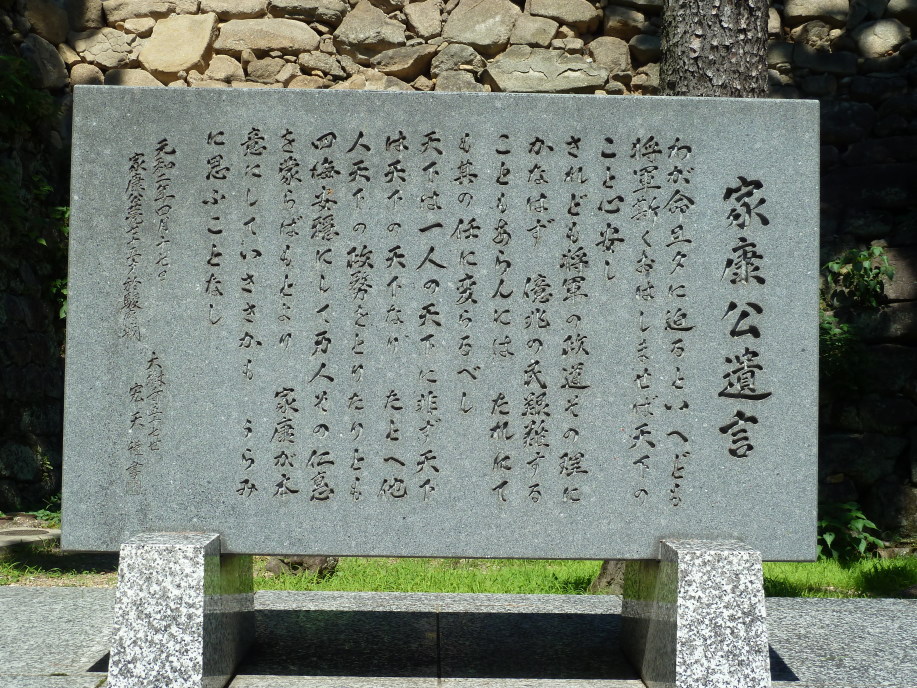 家康公遺言
わが命旦夕に迫るといへども
将軍斯くおはしませば天下の
こと心安し
されども将軍の政道その理に
かなはず 億兆の民艱難する
こともあらんには たれにても
其の任に変らるべし
天下は一人の天下に非ず天下
は天下の天下なり たとへ他
人天下の政務をとりたりとも
四海安穏にして万人その仁恵
を蒙らばもとより 家康が本
意にしていささかも うらみ
に思ふことなし
元和二年四月十七日
家康公薨七十五才於駿府城
大樹寺